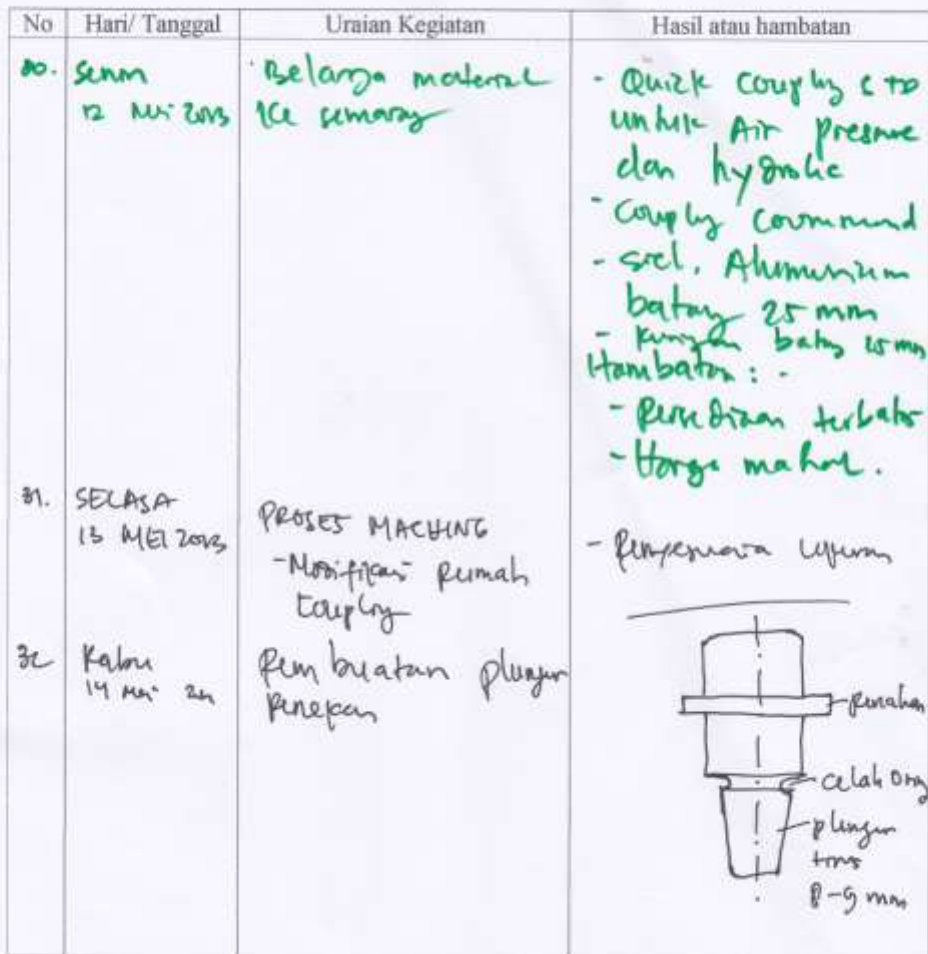 No Hari/ Tanggal Uraian Kegiatan Hasil atau hambatan
30. Senin
12 Mei 2013
Belanja material
ke semarang
- Quick coupling STD
untuk Air pressure
dan hydrolic
- coupling
- Alumunium
batang 25 mm
- kuningan batang 25 mm
Hambatan : -
- Persediaan terbatas
- Harga mahal.
31. SELASA
13 MEI 2013
PROSES MACHING
- Modifikasi Rumah
coupling
- Penyesuaia ukuran
32 Rabu
14 Mei
Pembuatan plunger
Penekan
penahan
celah Oring
plunger
tirus
8-9 mm